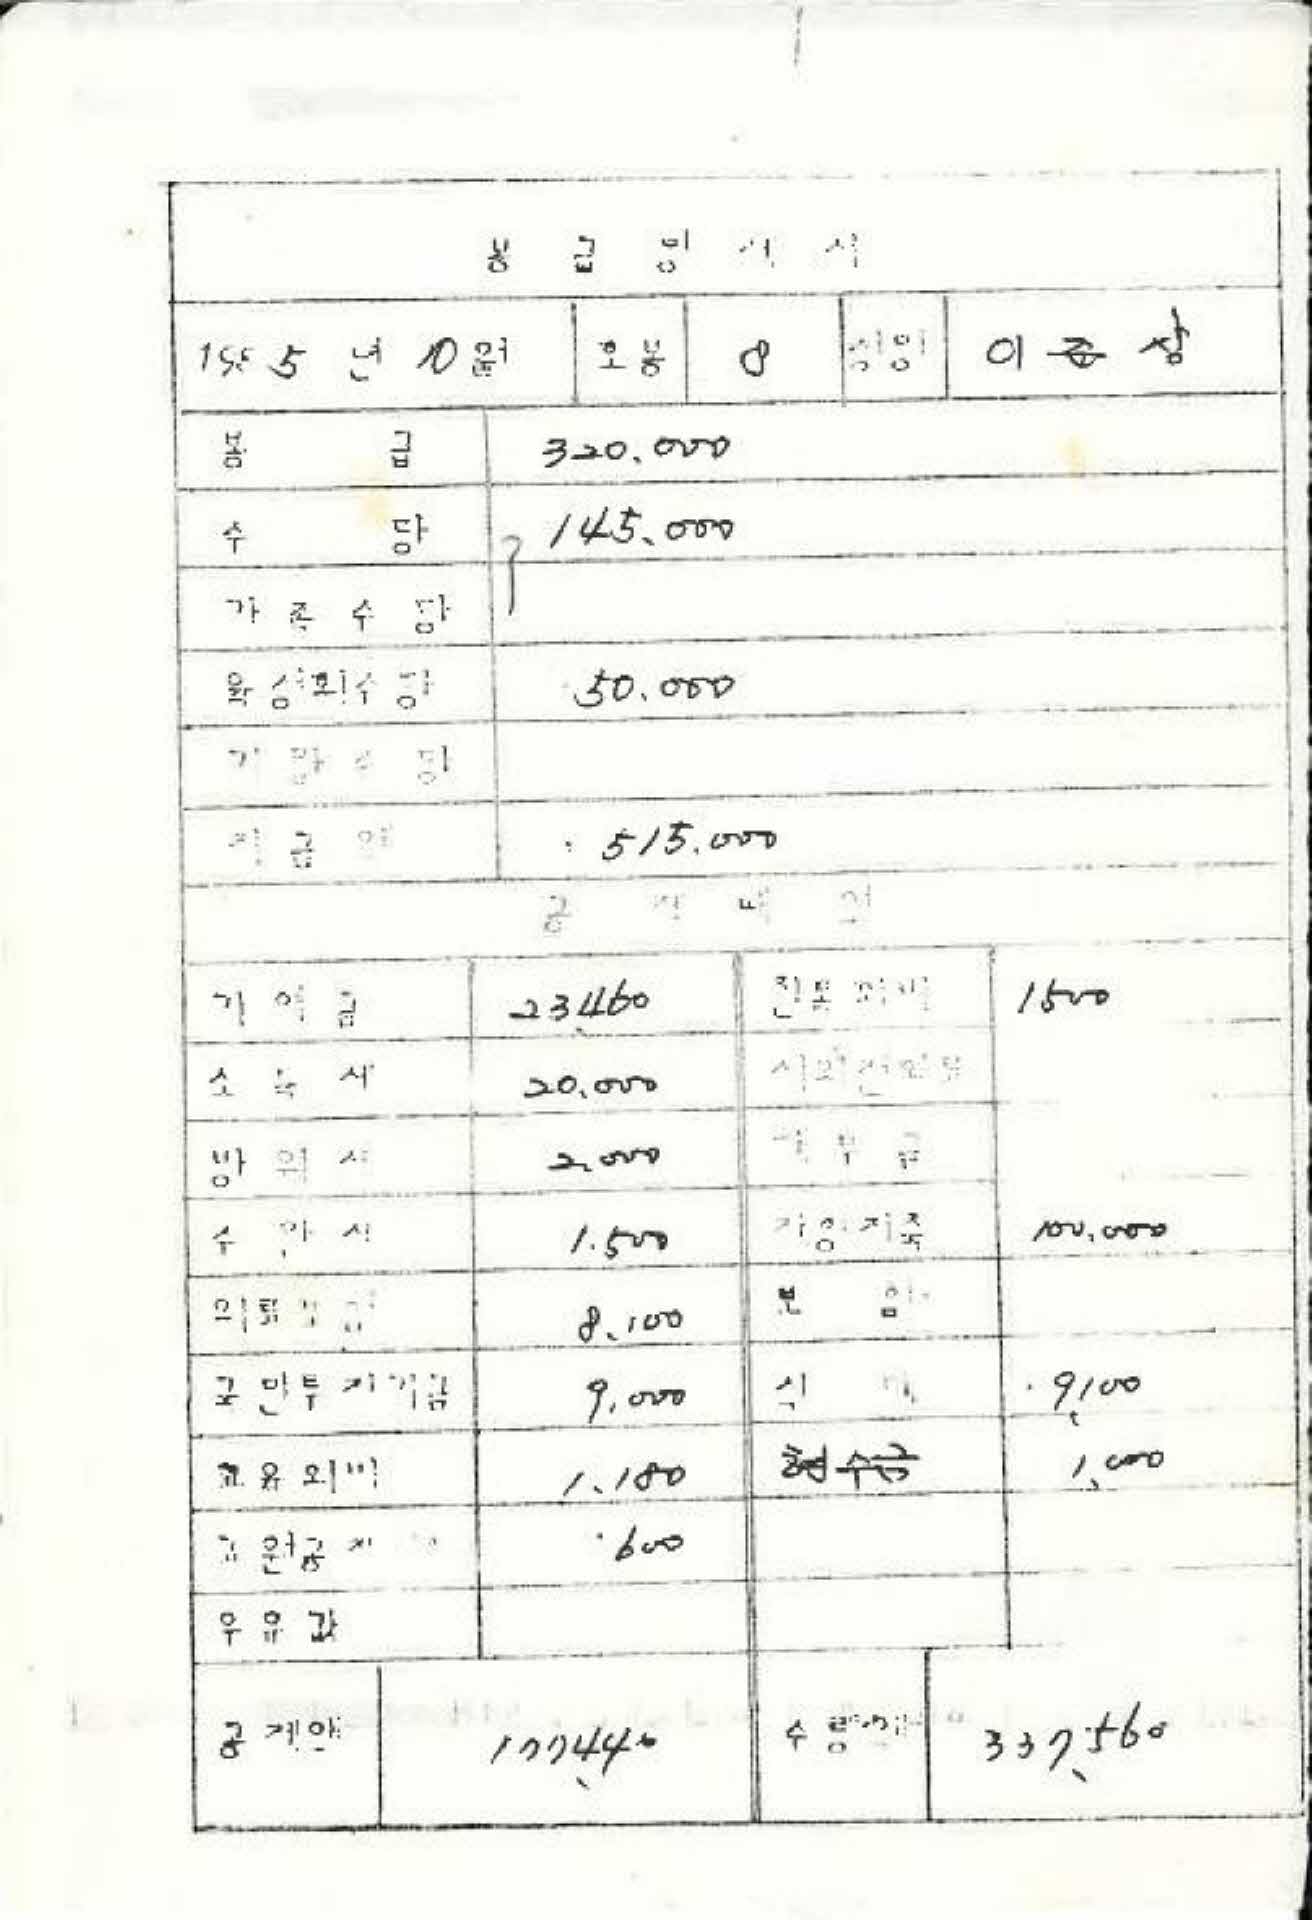 봉급명세서
5 년 10 월 호봉 8 성명 이 종 상
봉 급 320.000
수 당 145.000
가 족 수 당
육성회수당 50.000
수 당
지급액 515.000
공 제 내 역
기여금 23,460 친목회비 1500
소 득 세 20.000 시외전화료
방 위 세 2.000 급
주 민 세 1.500 가계저축 100,000
의료보험 8.100
국민투자기금 9,000 식 9,100
교육회비 1.180 수금 1,000
교원공제 600
우 유 값
공제액 177,440 수령액 337,560